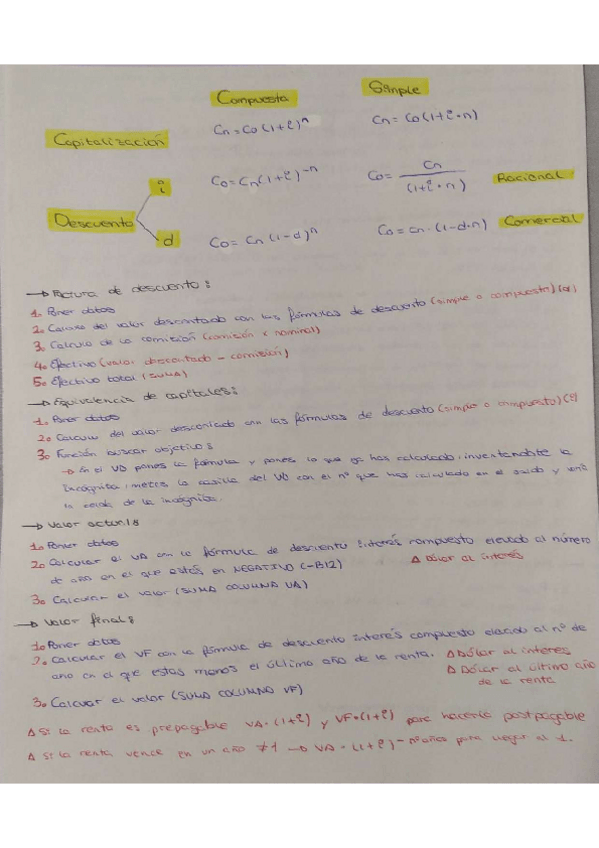 Compuesta Simple
Capitalización Cn = Co (1+i)^n Cn = Co (1+i·n)
i Co = Cn (1+i)^-n Co = Cn / (1+i·n) Racional
Descuento
d Co = Cn (1-d)^n Co = Cn · (1-d·n) Comercial
→ Factura de descuento:
1. Poner datos
2. Calculo del valor descontado con las fórmulas de descuento (simple o compuesto) (d)
3. Calculo de la comisión (comisión x nominal)
4. Efectivo (valor descontado - comisión)
5. Efectivo total (SUMA)
→ Equivalencia de capitales:
1. Poner datos
2. Calcular del valor descontado con las fórmulas de descuento (simple o compuesto) (i)
3. Función buscar objetivo:
→ En el VD pones la fórmula y pones lo que ya has calculado, inventandote la
incógnita, metes la casilla del VD con el nº que has calculado en el
la celda de la incógnita.
→ Valor actual:
1. Poner datos
2. Calcular el VA con la fórmula de descuento interés compuesto elevado al número
de año en el que estés en NEGATIVO (-B12) Δ Dólar al interés
3. Calcular el valor (SUMA COLUMNA VA)
→ Valor final:
1. Poner datos
2. Calcular el VF con la fórmula de descuento interés compuesto elevado al nº de
año en el que estas menos el último año de la renta. Δ Dólar al interés
Δ Dólar al último año
de la renta
3. Calcular el valor (SUMA COLUMNA VF)
Δ Si la renta es prepagable VA·(1+i) y VF·(1+i) para hacerla postpagable
Δ Si la renta vence en un año ≠1 → VA·(1+i)^-nºaños para llegar al 1.